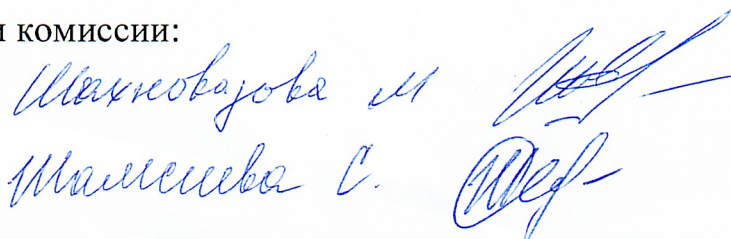 и комиссии:
Шахновазова М
Шамсиева С.